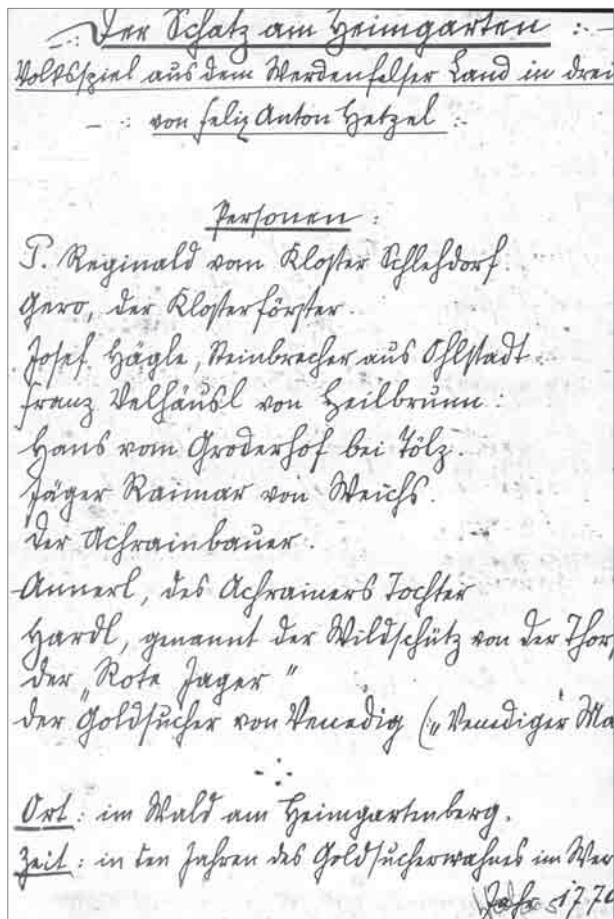 -:- Der Schatz am Heimgarten -:-
Volksspiel aus dem Werdenfelser Land in drei
-:- von Felix Anton Hetzel -:-
Personen:
P. Reginald vom Kloster Schlehdorf.
Gero, der Klosterförster.
Josef Hägle, Steinbrecher aus Ohlstadt.
Franz Velhäusl von Heilbrunn.
Hans vom Groderhof bei Tölz.
Jäger Raimar von Weichs.
Der Achrainbauer.
Annerl, des Achrainers Tochter
Hardl, genannt der Wildschütz von der Thor
der „Rote Jager"
der Goldsucher von Venedig („Venediger Ma
Ort: im Wald am Heimgartenberg.
Zeit: in den Jahren des Goldsucherwahnes im Wer
177